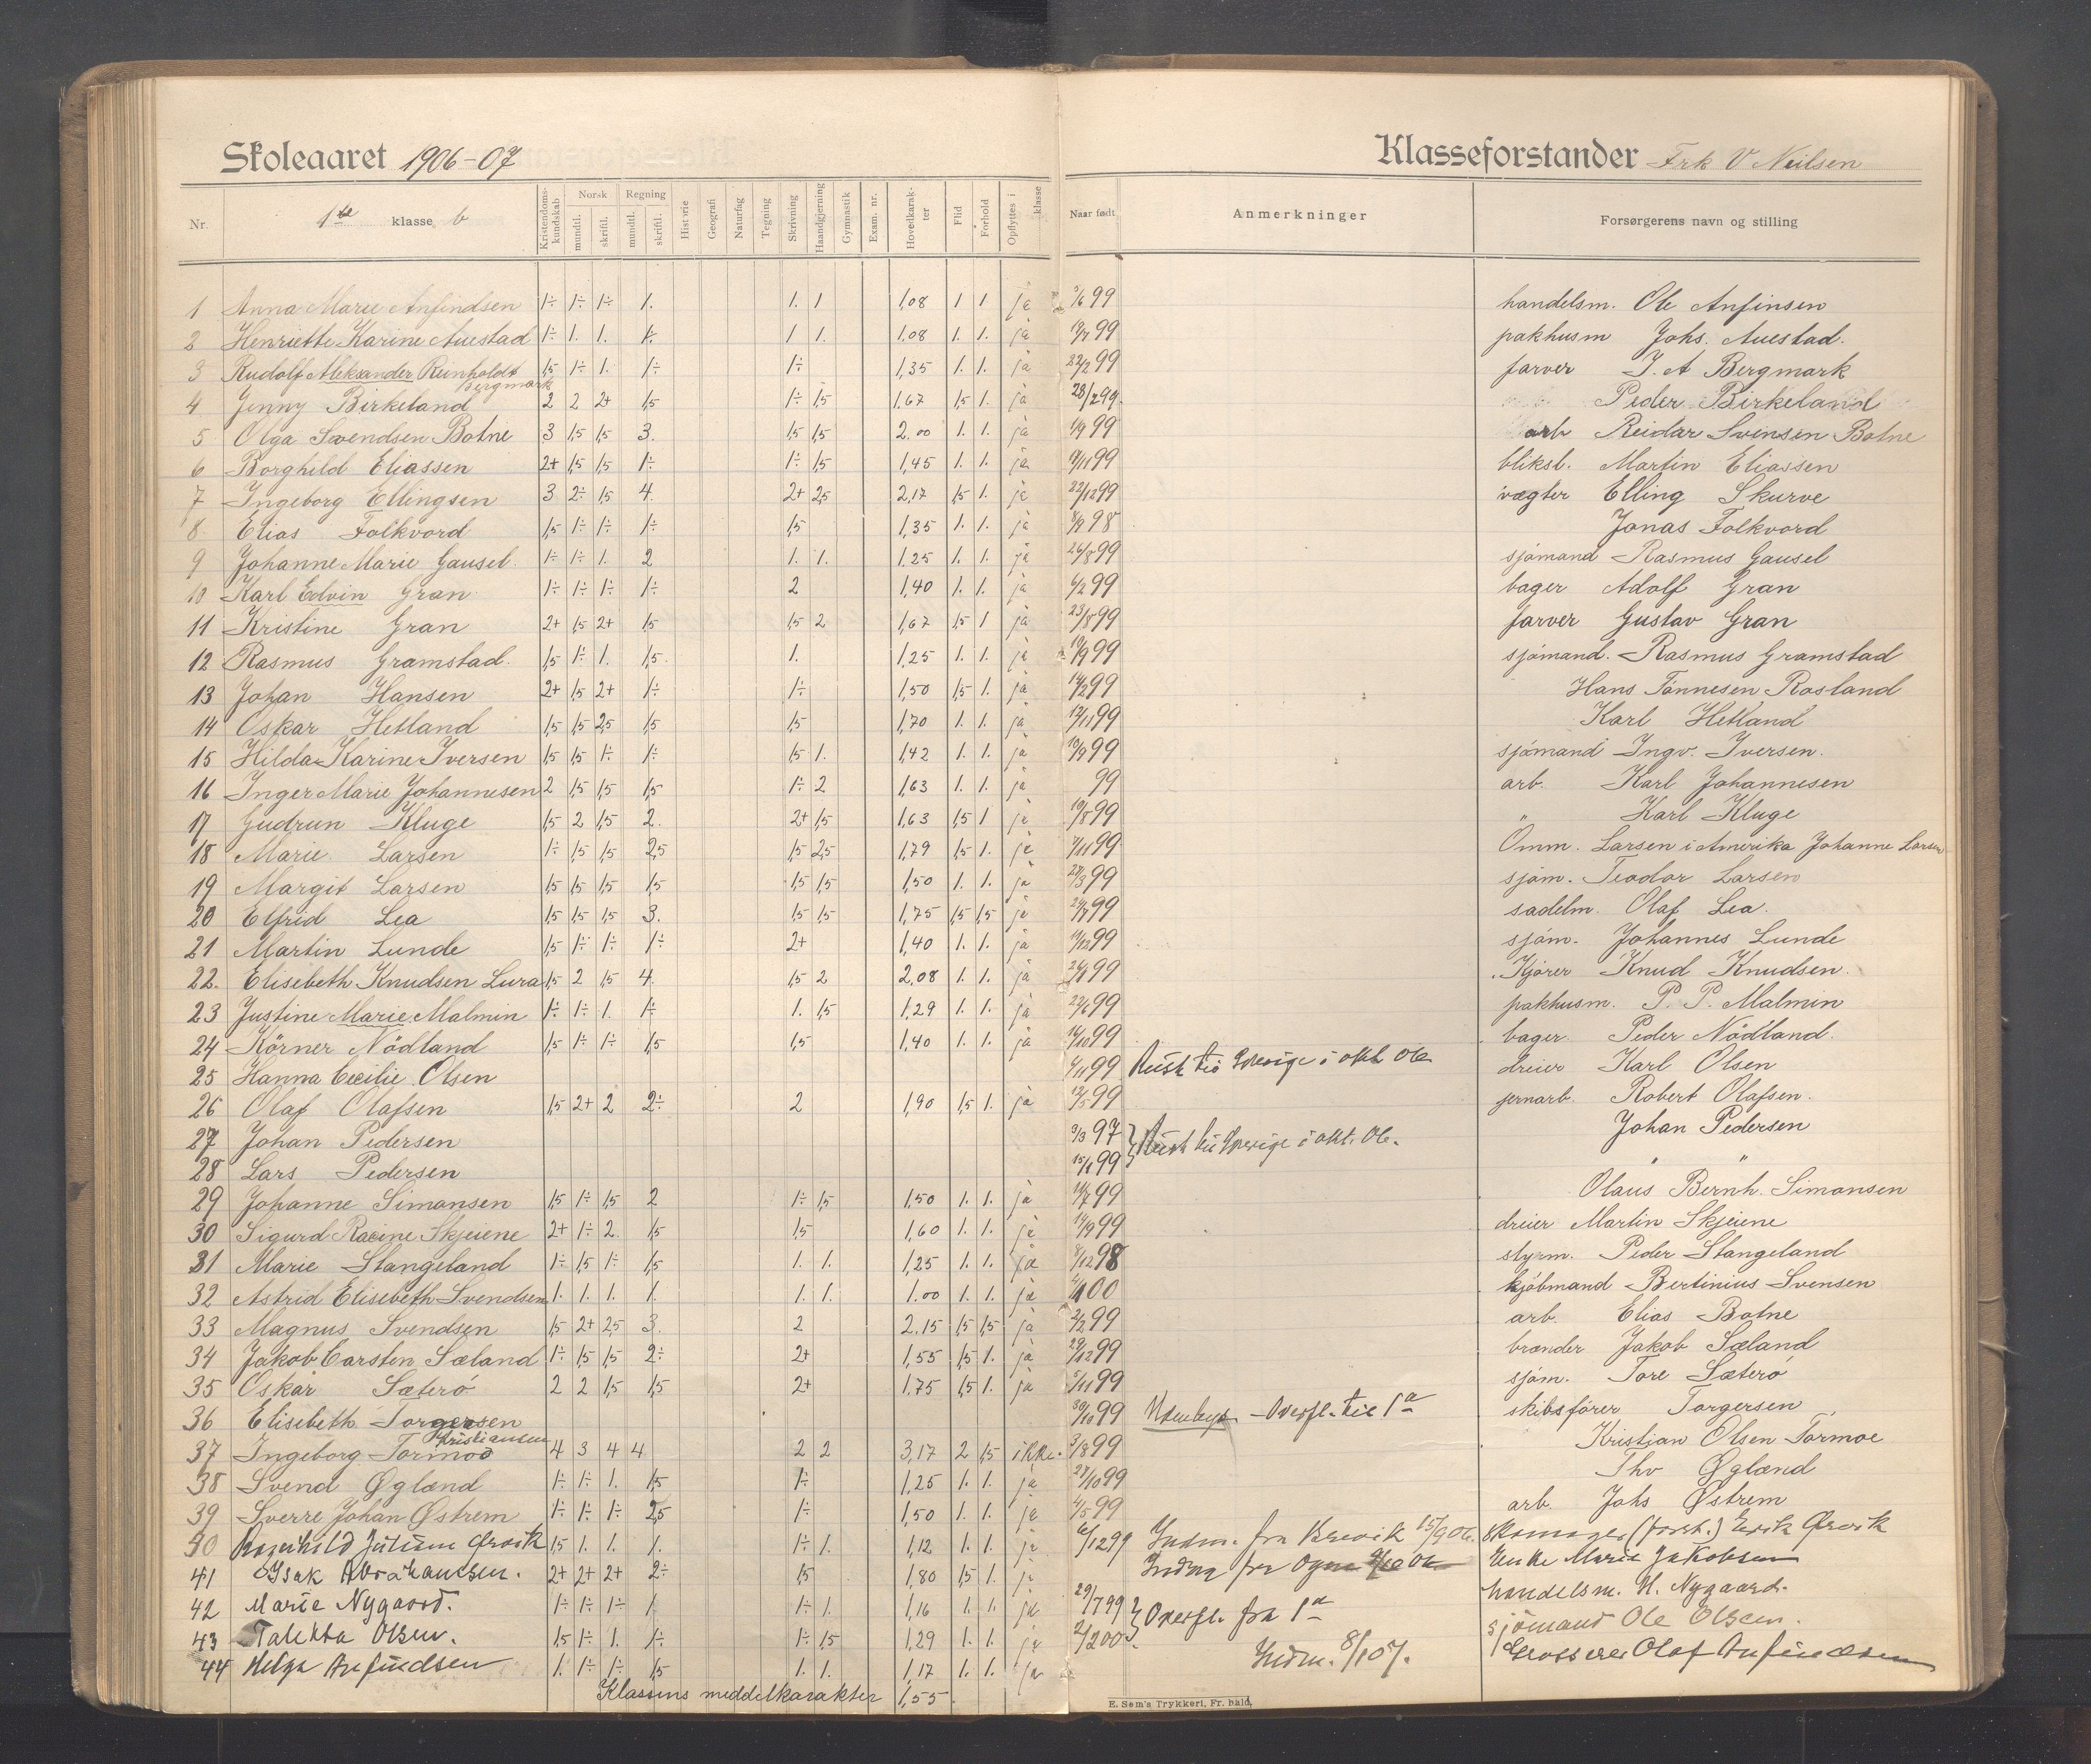 Skoleaaret 1906-07
Klasseforstander Frk V Neilsen
Nr. 1ste klasse b Kristendomskundskab Norsk mundtl. skriftl. Regning mundtl. skriftl. Historie Geografi Naturfag Tegning Skrivning Haandgjerning Gymnastik Exam. nr. Hovedkarakter Flid Forhold Opflyttes i klasse Naar født Anmerkninger Forsørgerens navn og stilling
1 Anna Marie Anfindsen 1÷ 1÷ 1÷ 1. 1. 1 1,08 1 1 ja 99 handelsm. Ole Anfinsen
2 Henriette Karine Auestad 1÷ 1. 1. 1÷ 1 1. 1,08 1. 1. ja 99 pakhusm Johs. Auestad.
3 Rudolf Aleksander Reinholdt Bergmark 1,5 1÷ 1. 1÷ 1÷ 1,35 1. 1. ja 22/2 99 farver J. A Bergmark
4 Jenny Birkeland 2 2 2+ 1,5 1÷ 1,5 1,67 1,5 1. ja 28/2 99. Peder Birkeland
5 Olga Svendsen Botne 3 1,5 1,5 3. 1,5 1,5 2,00 1. 1. ja 99 arb Reidar Svensen Botne
6 Borghild Eliassen 2+ 1,5 1,5 1÷ 1÷ 1,5 1,45 1. 1. ja 99 bliksl. Martin Eliassen
7 Ingeborg Ellingsen 3 2÷ 1,5 4. 2+ 2,5 2,17 1,5 1. ja 22/12 99 vægter Elling Skurve
8 Elias Folkvord 1,5 1÷ 1÷ 1÷ 1,5 1,35 1. 1. ja 98 Jonas Folkvord
9 Johanne Marie Gausel 1÷ 1÷ 1. 2 1. 1. 1.25 1. 1. ja 26/8 99 sjömand Rasmus Gausel
10 Karl Edvin Gran 1÷ 1÷ 1÷ 1÷ 2 1,40 1. 1. ja 99 bager Adolf Gran
11 Kristine Gran 2+ 1,5 2+ 1,5 1,5 2 1,67 1,5 1 ja 23/8 99 farver Gustav Gran
12 Rasmus Gramstad. 1,5 1÷ 1. 1,5. 1. 1,25 1. 1. ja 99 sjömand. Rasmus Gramstad
13 Johan Hansen 2+ 1,5 2+ 1÷ 1÷ 1,50 1,5 1. ja 14/2 99 Hans Tönnesen Rosland
14 Oskar Hetland 1,5 1,5 2,5 1,5 1,5 1,70 1. 1. ja 99 Karl Hetland
15 Hilda Karine Iversen 1,5 1,5 1÷ 1÷ 1,5 1. 1,42 1. 1. ja 10/9 99 sjömand Ingv. Iversen.
16 Inger Marie Johannesen 2 1,5 1,5 1,5 1÷ 2 1,63 1. 1. ja 99 arb. Karl Johannesen
17 Gudrun Kluge 1,5 2 1,5 2. 2+ 1,5 1,63 1,5 1 ja 19/8 99 " Karl Kluge
18 Marie Larsen 1÷ 1,5 1,5 2,5 1,5 2,5 1,79 1,5 1. ja 99 Omm. Larsen i Amerika Johanne Larsen
19 Margit Larsen 1,5 1,5 1,5 1,5 1,5 1,5 1,50 1. 1. ja 27/3 99 sjöm. Teodor Larsen
20 Elfrid Lea 1,5 1,5 1,5 3. 1,5 1,5 1,75 1,5 1,5 ja 99 sadelm. Olaf Lea.
21 Martin Lunde 1,5 1÷ 1÷ 1÷ 2+ 1,40 1. 1. ja 99 sjöm. Johannes Lunde
22. Elisebeth Knudsen Lura 1,5 2 1,5 4. 1,5 2 2,08 1. 1. ja 99 Kjörer Knud Knudsen.
23 Justine Marie Malmin 1÷ 1÷ 1. 1÷ 1. 1,5 1,29 1. 1. ja 22/6 99 pakhusm. P. P. Malmin
24 Körner Nödland 1,5 1÷ 1÷ 1,5 1,5 1,40 1. 1. ja 16/10 99 bager Peder Nödland.
25 Hanna Cecilie Olsen 99 Reist til Sverige i okt 06 dreier Karl Olsen
26 Olaf Olafsen 1,5 2+ 2 2÷ 2 1,90 1,5 1. ja 12/5 99 jernarb. Robert Olafsen.
27 Johan Pedersen 3/3 97 } Reist til Sverige i okt. 06. Johan Pedersen
28 Lars Pedersen 99 " "
29 Johanne Simonsen 1,5 1÷ 1,5 2 1÷ 1,5 1,50 1. 1. ja 99 Olaus Bernh. Simonsen
30 Sigurd Racine Skjeiene 2+ 1÷ 2. 1,5 1,5 1,60 1. 1. ja 14/9 99 dreier Martin Skjeiene
31 Marie Stangeland 1÷ 1,5 1÷ 1,5 1. 1. 1,25 1. 1. ja 8/12 98 styrm. Peder Stangeland
32 Astrid Elisebeth Svendsen 1. 1. 1. 1. 1. 1. 1.00 1. 1. ja 00 kjöbmand Bertinius Svensen
33 Magnus Svendsen 1,5 2+ 2,5 3. 2 2.15 1,5 1,5 ja 2/2 99 arb. Elias Botne
34 Jakob Carsten Sæland 1÷ 1,5 1,5 2÷ 2+ 1,55 1,5 1. ja 29/12 99 brænder Jakob Sæland
35 Oskar Sæterö 2 2 1,5 1,5 2+ 1.75 1,5 1. ja 99 sjöm. Tore Sæterö
36 Elisebeth Torgersen 30/10 99 Overfl. til 1a skibsförer Torgersen
37 Ingeborg Kristiansen Tormod 4 3 4 4 2 2 3,17 2 1,5 ikke. 3/8 99 Kristian Olsen Tormoe
38 Svend Øglænd 1÷ 1÷ 1. 1,5 1÷ 1,25 1. 1. ja 27/10 99 Thv Øglænd
39 Sverre Johan Østrem 1÷ 1÷ 1÷ 2,5 1÷ 1,50 1. 1. ja 4/5 99 arb. Johs Østrem
40 Ragnhild Juliane Ørvik 1,5 1. 1. 1. 1÷ 1. 1,12 1. 1. ja 6/12 99 Indm. fra Brevik 15/9 06. Skomager (forst.) Erik Ørvik
41 Isak Abrahamsen. 2+ 2+ 2+ 2÷ 1,5 1,80 1,5 1. ja Indm fra Ogna 06 Enke Marie Jakobsen
42 Marie Nygaard. 1÷ 1÷ 1÷ 1. 1÷ 1. 1,16 1. 1. ja 29/7 99 } Overfl. fra 1a handelsm. H. Nygaard.
43 Talekta Olsen. 1,5 1÷ 1. 1÷ 1÷ 1,5 1,29 1. 1. ja 2/2 00 sjömand Ole Olsen.
44 Helga Anfindsen 1. 1÷ 1÷ 1,5 1. 1. 1,17 1. 1. ja Indm. 8/1 07. Grosserer Olaf Anfindsen
Klassens meddelkarakter 1,55.
E. Søm's Trykkeri, Fr. hald.